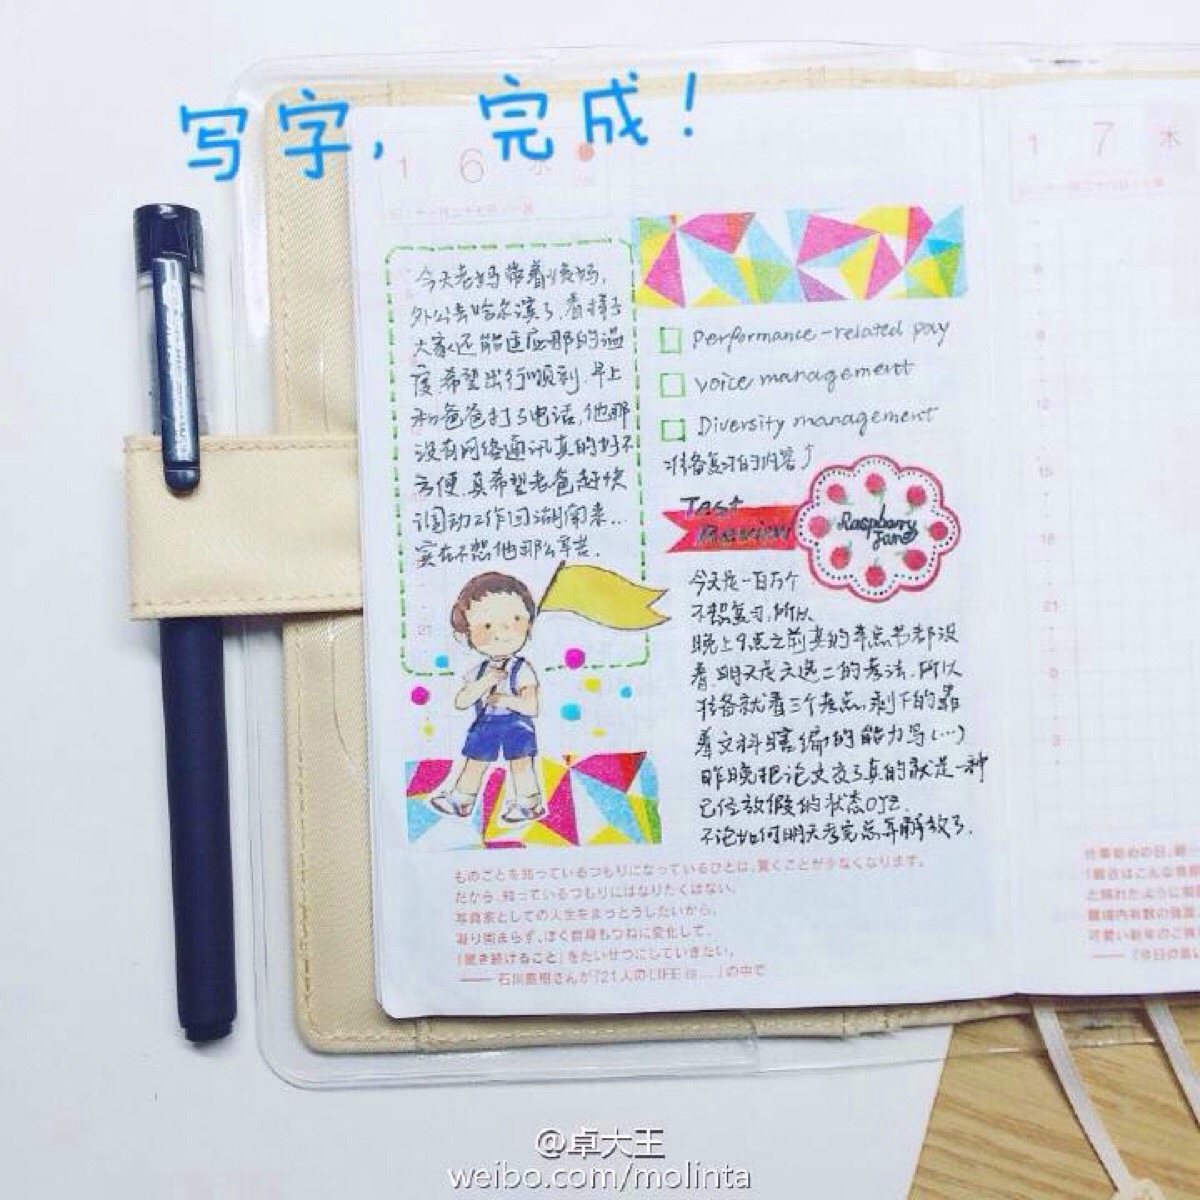 写字，完成！
1 6 水
今天老妈带着
外公去哈尔滨了，看样子
大家还能适应那的温
度，希望出行顺利，早上
和爸爸打了电话，他那
没有网络通讯真的好不
方便，真希望老爸赶快
调动工作回湖南来..
实在不想他那么辛苦.
Performance-related pay
voice management
Diversity management
准备复习的内容↑
Test
Review
Raspberry
今天是一百万个
不想复习，所以
晚上9点之前真的半点书都没
看，明天是六选二的考法，所以
准备就看三个考点，剩下的靠
着文科瞎编的能力写(...)
昨晚把论文交了真的就是一种
已经放假的状态
不论如何明天考完总算解放了.
ものごとを知っているつもりになっているひとは、驚くことが少なくなります。
だから、知っているつもりにはなりたくはない。
写真家としての人生をまっとうしたいから、
凝り固まらず、ぼく自身もつねに変化して、
「驚き続けること」をたいせつにしていきたい。
—— 石川直樹さんが『21人のLIFE is....』の中で
1 7 木
6
9
12
15
18
21
3
21
仕事始めの日。
@卓大王
weibo.com/molinta